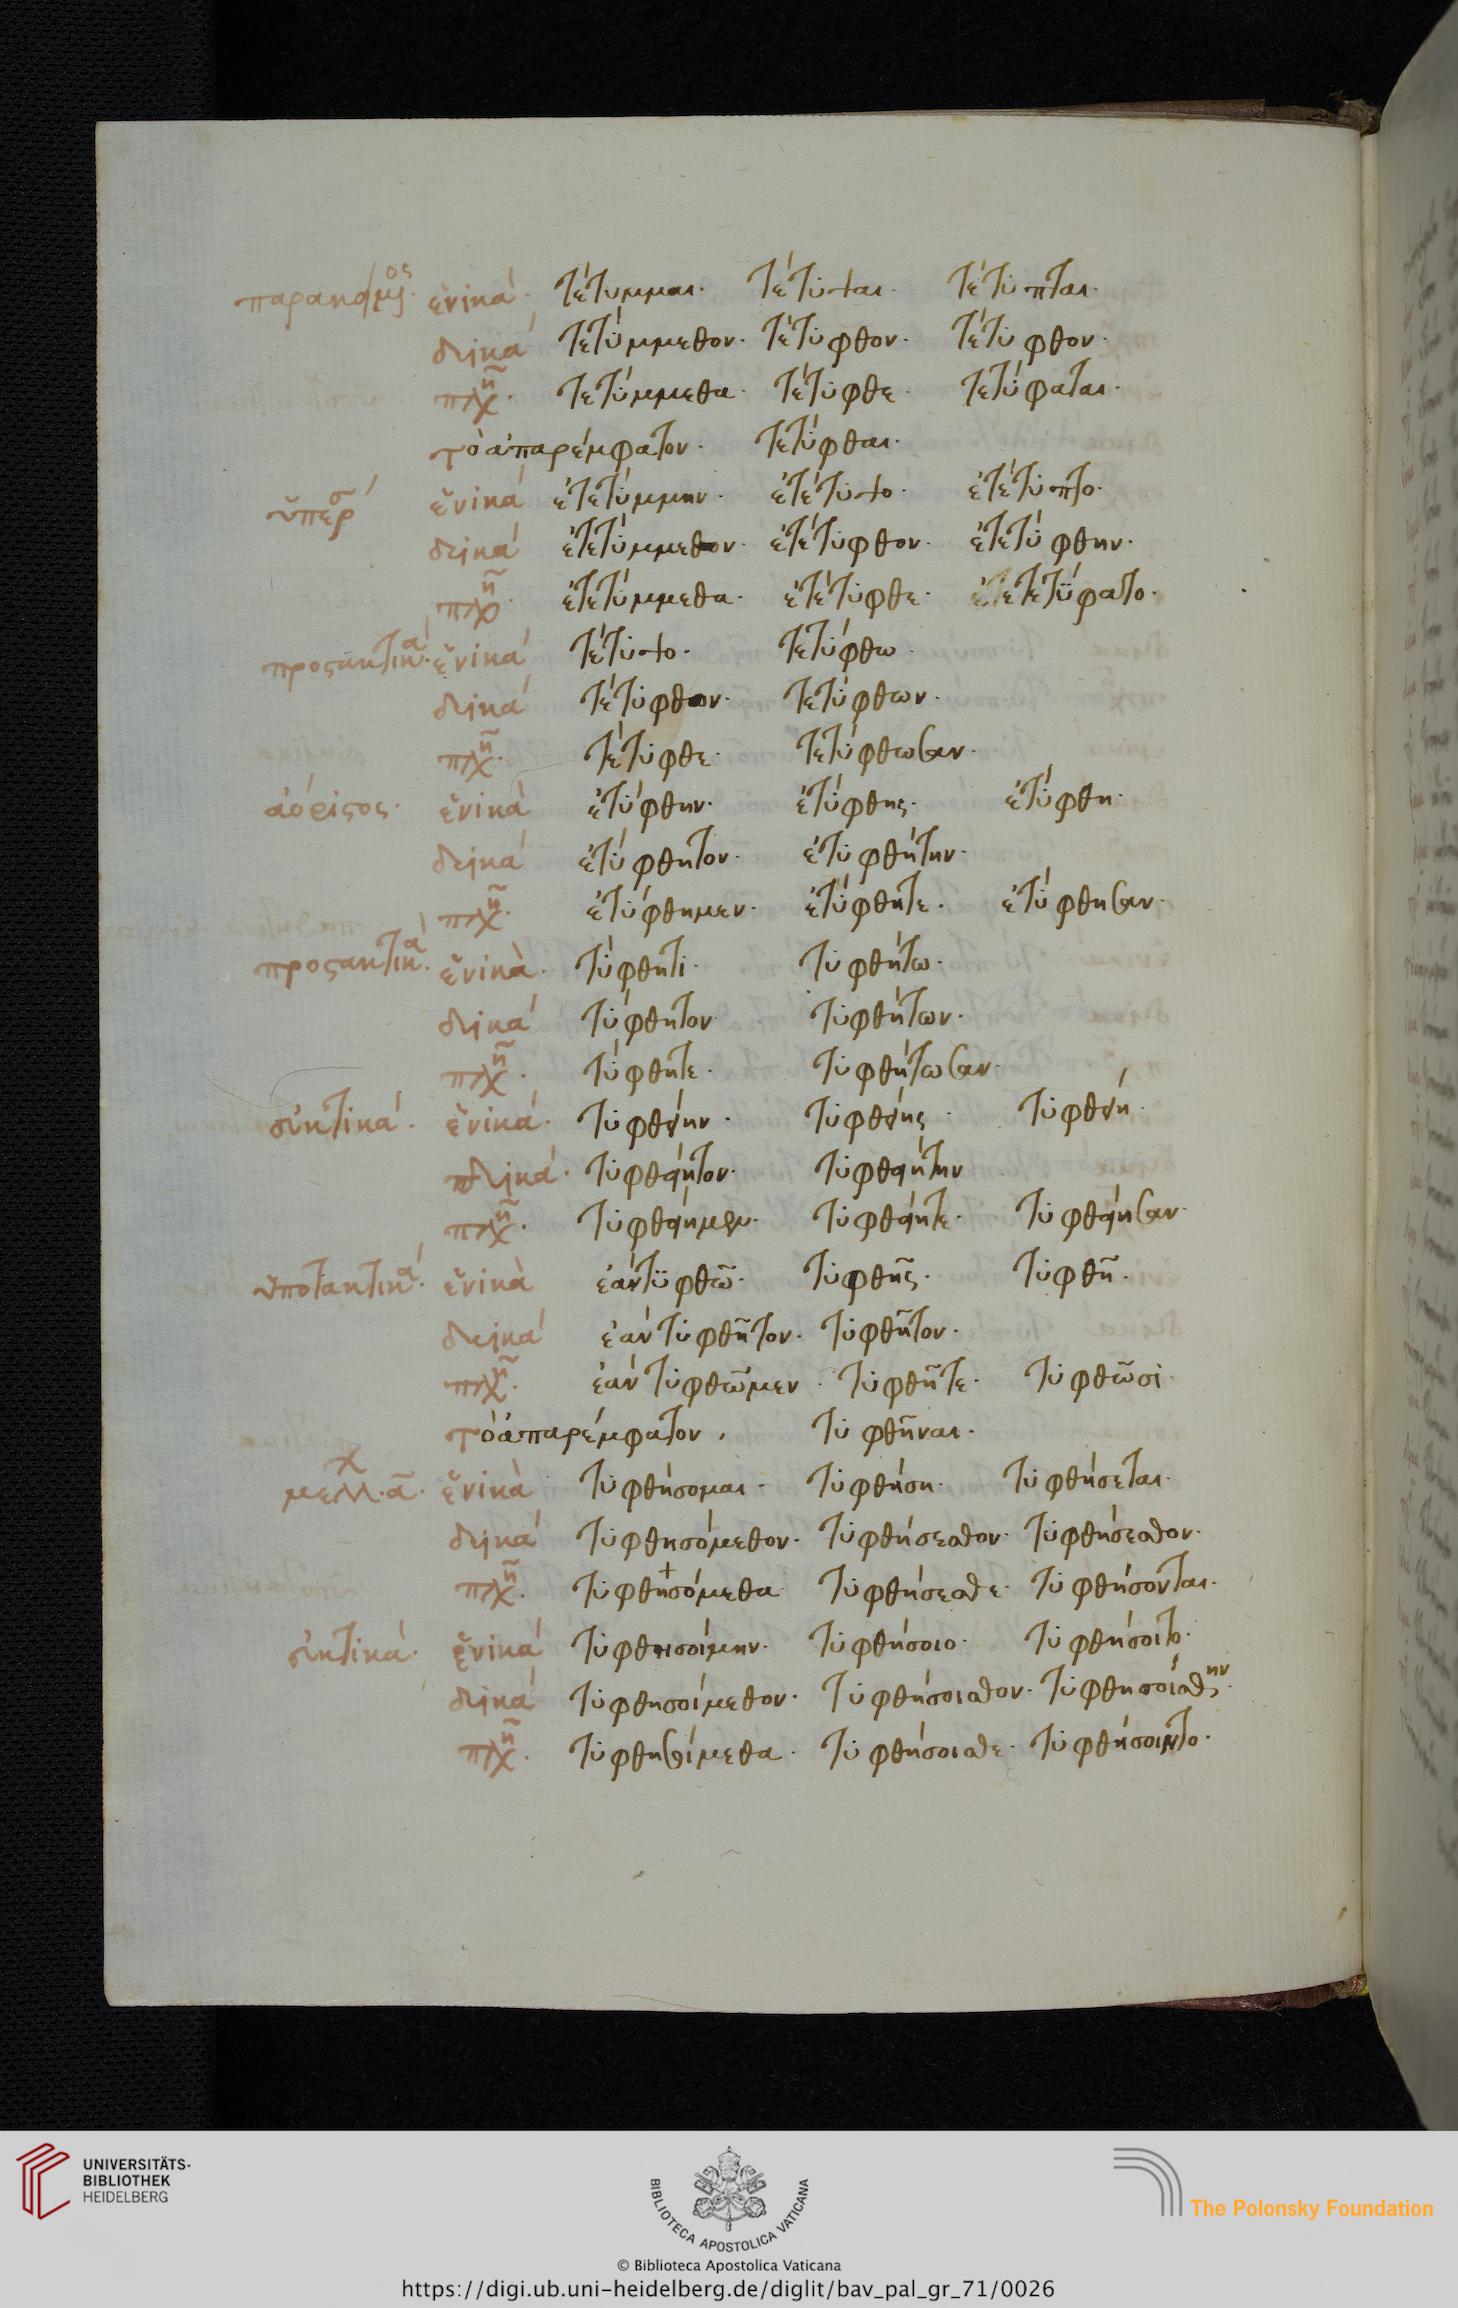 παρακείμος. ἑνικά. τέτυμμαι. τέτυψαι. τέτυπται.
δυικά τετύμμεθον. τέτυφθον. τέτυφθον.
πλχῆ. τετύμμεθα. τέτυφθε. τετύφαται.
τὸ ἀπαρέμφατον. τετύφθαι.
ὑπέρσ ἑνικά ἐτετύμμην. ἐτέτυψο. ἐτέτυπτο.
δυικά ἐτετύμμεθον. ἐτέτυφθον. ἐτετύφθην.
πλχῆ. ἐτετύμμεθα. ἐτέτυφθε. ἐτετετύφατο.
προςακτικά. ἑνικά τέτυψο. τετύφθω.
δυικά τέτυφθον. τετύφθων.
πλχῆ. τέτυφθε. τετύφθωσαν.
ἀόριστος. ἑνικά ἐτύφθην. ἐτύφθης. ἐτύφθη.
δυικά ἐτύφθητον. ἐτυφθήτην.
πλχῆ. ἐτύφθημεν. ἐτύφθητε. ἐτύφθησαν.
προςακτικά. ἑνικὰ. τύφθητι. τυφθήτω.
δυικά τύφθητον. τυφθήτων.
πλχῆ. τύφθητε. τυφθήτωσαν.
εὐκτικά. ἑνικά. τυφθείην. τυφθείης. τυφθείη.
δυικά. τυφθείητον. τυφθειήτην
πλχῆ. τυφθείημεν. τυφθείητε. τυφθείησαν.
ὑποτακτικά. ἑνικὰ ἐάν τυφθῶ. τυφθῆς. τυφθῆ.
δυικά ἐάν τυφθῆτον. τυφθῆτον.
πλχῆ. ἐάν τυφθῶμεν. τυφθῆτε. τυφθῶσι.
τὸ ἀπαρέμφατον. τυφθῆναι.
μελλ. α. ἑνικὰ τυφθήσομαι. τυφθήση. τυφθήσεται.
δυικά τυφθησόμεθον. τυφθήσεσθον. τυφθήσεσθον.
πλχῆ. τυφθησόμεθα τυφθήσεσθε. τυφθήσονται.
εὐκτικά. ἑνικά τυφθησοίμην. τυφθήσοιο. τυφθήσοιτο.
δυικά τυφθησοίμεθον. τυφθήσοισθον. τυφθησοίσθην.
πλχῆ. τυφθησοίμεθα. τυφθήσοισθε. τυφθήσοιντο.
UNIVERSITÄTS-
BIBLIOTHEK
HEIDELBERG
BIBLIOTECA APOSTOLICA VATICANA
The Polonsky Foundation
© Biblioteca Apostolica Vaticana
https://digi.ub.uni-heidelberg.de/diglit/bav_pal_gr_71/0026